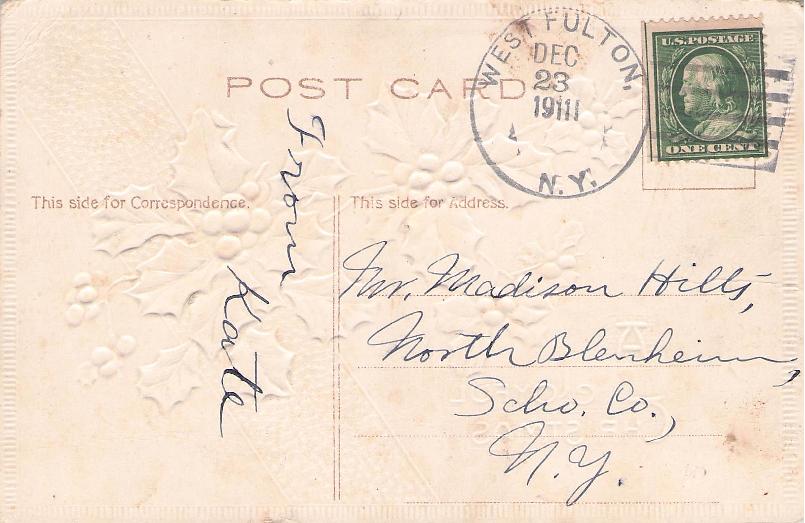 POST CARD
WEST FULTON,
DEC
23
1911
N.Y.
U.S. POSTAGE
ONE CENT
This side for Correspondence.
This side for Address.
From Kate
Mr. Madison Hills,
North Blenheim,
Scho. Co.,
N.Y.